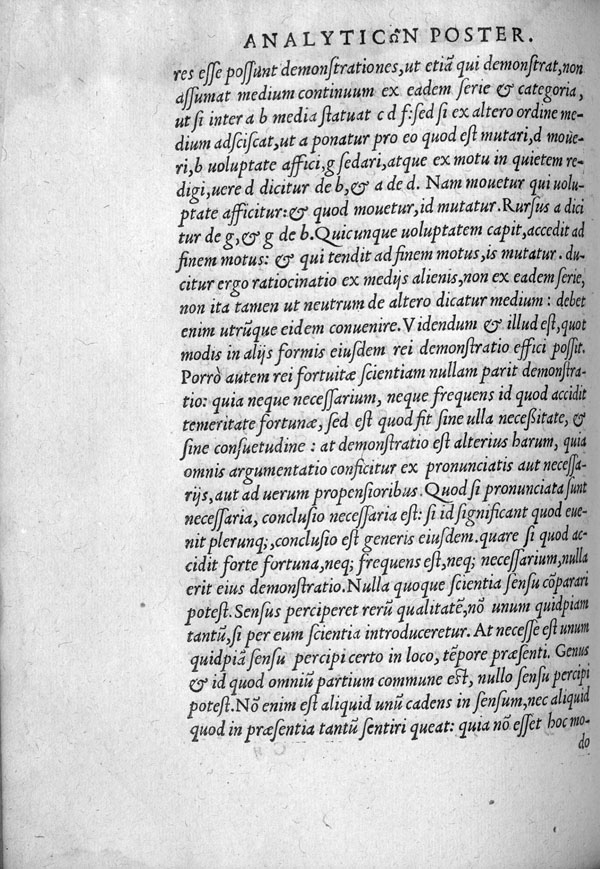 ANALYTICΩN POSTER.
res esse possunt demonstrationes, ut etiã qui demonstrat, non
assumat medium continuum ex eadem serie & categoria,
ut si inter a b media statuat c d f: sed si ex altero ordine me-
dium adsciscat, ut a ponatur pro eo quod est mutari, d moue-
ri, b uoluptate affici, g sedari, atque ex motu in quietem re-
digi, uere d dicitur de b, & a de d. Nam mouetur qui uolu-
ptate afficitur: & quod mouetur, id mutatur. Rursus a dici
tur de g, & g de b. Quicunque uoluptatem capit, accedit ad
finem motus: & qui tendit ad finem motus, is mutatur. du-
citur ergo ratiocinatio ex medijs alienis, non ex eadem serie,
non ita tamen ut neutrum de altero dicatur medium: debet
enim utrũque eidem conuenire. Videndum & illud est, quot
modis in alijs formis eiusdem rei demonstratio effici possit.
Porrò autem rei fortuitæ scientiam nullam parit demonstra-
tio: quia neque necessarium, neque frequens id quod accidit
temeritate fortunæ, sed est quod fit sine ulla neceßitate, &
sine consuetudine: at demonstratio est alterius harum, quia
omnis argumentatio conficitur ex pronunciatis aut necessa-
rijs, aut ad uerum propensioribus. Quod si pronunciata sunt
necessaria, conclusio necessaria est: si id significant quod eue-
nit plerunq;, conclusio est generis eiusdem. quare si quod ac-
cidit forte fortuna, neq; frequens est, neq; necessarium, nulla
erit eius demonstratio. Nulla quoque scientia sensu cõparari
potest. Sensus perciperet rerũ qualitatẽ, nõ unum quidpiam
tantũ, si per eum scientia introduceretur. At necesse est unum
quidpiã sensu percipi certo in loco, tẽpore præsenti. Genus
& id quod omniũ partium commune est, nullo sensu percipi
potest. Nõ enim est aliquid unũ cadens in sensum, nec aliquid
quod in præsentia tantũ sentiri queat: quia nõ esset hoc mo-
do